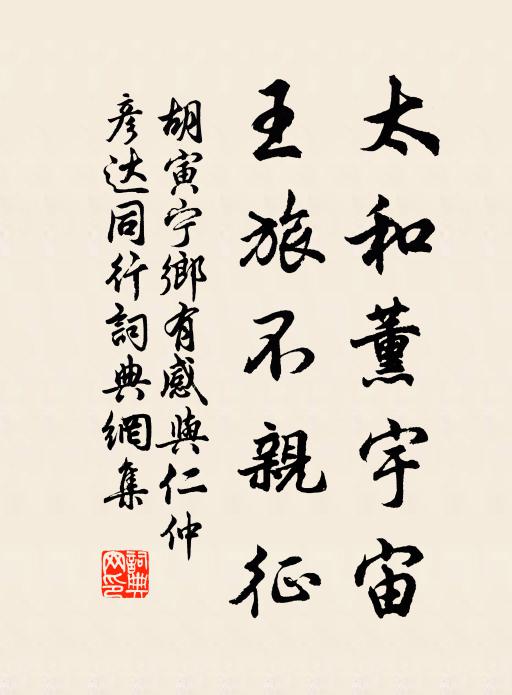 太和薰宇宙
王旅不親征
胡寅宁鄉有感與仁仲
彦达同行詞典網集
詞典网印